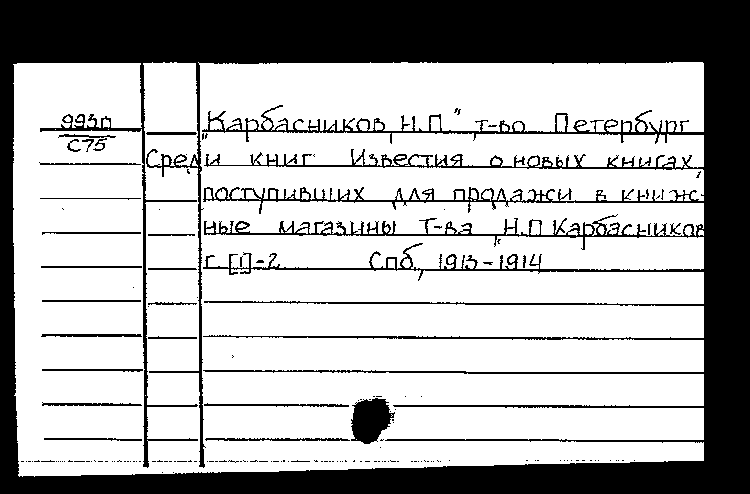 993п
С75
"Карбасников, Н.П.", т-во Петербург
Среди книг. Известия о новых книгах,
поступивших для продажи в книж-
ные магазины Т-ва "Н.П. Карбасников
г. [1]-2 Спб, 1913-1914